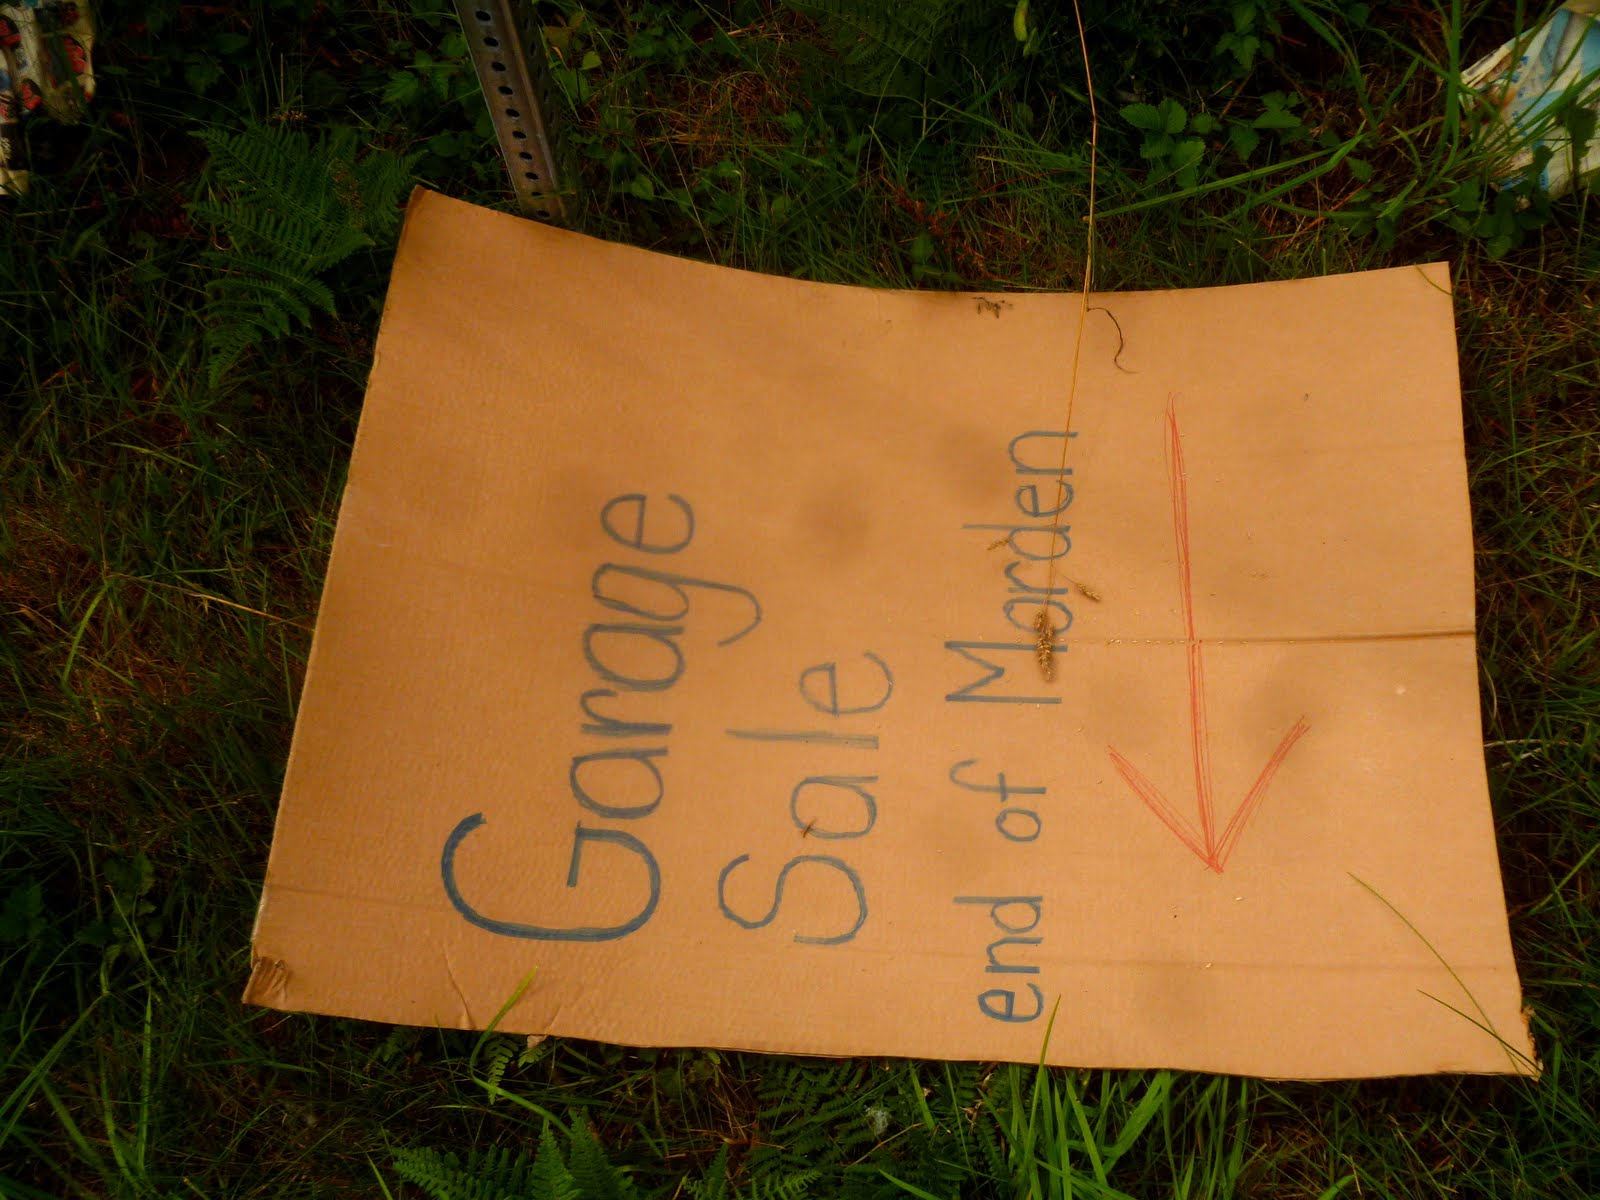 Garage
Sale
end of Morden